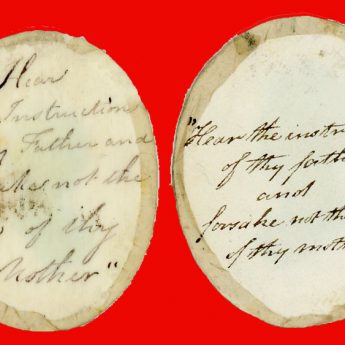 Hear
Instruction
Father and
not the
of thy
Mother"
"Hear the instr
of thy fath
and
forsake not th
of thy moth